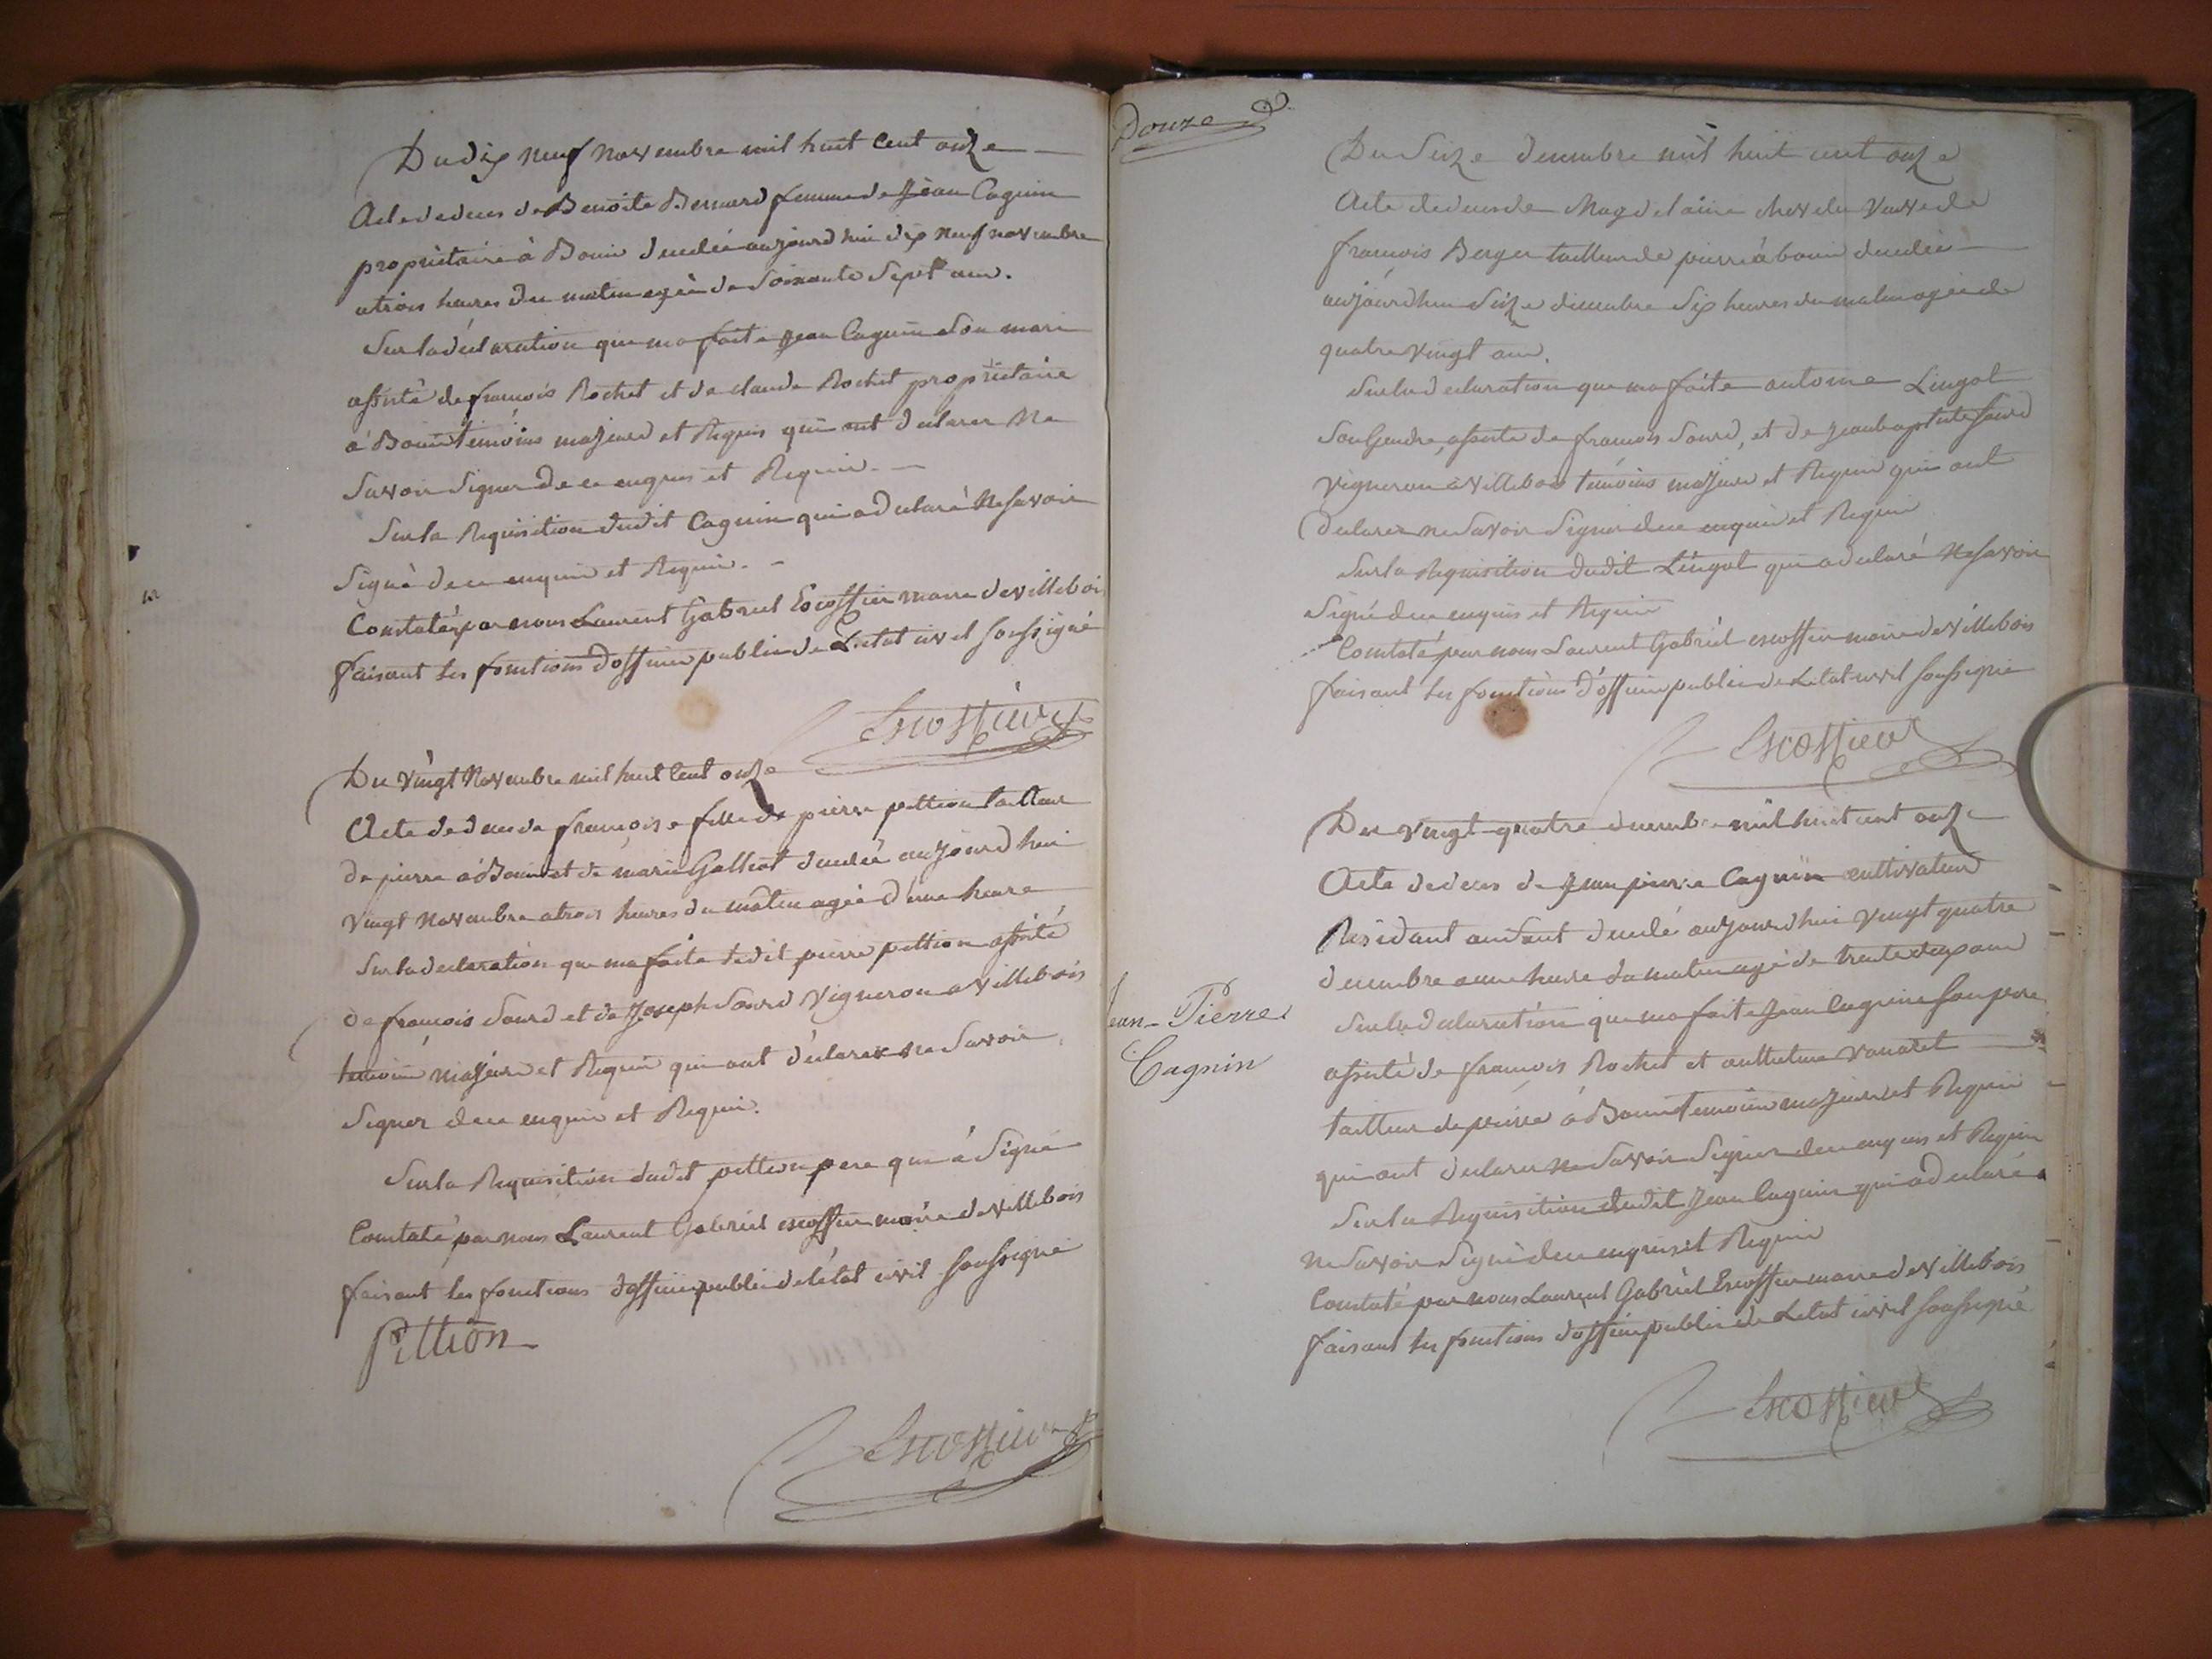 Du dix neuf Novembre mil huit Cent onze
Acte de deces de Benoite Bernard femme de Jean Cagnin
propriétaire à Bouis decedée aujourd'hui dix neuf novembre
atrois heures du matin agée de Soixante Sept ans.
Sur la déclaration que ma faite Jean Cagnin Son mari
assisté de françois Rochet et de claude Rochet propriétaire
à Bouis témoins majeurs et Requis qui ont declarer Ne
Savoir Signer de ce enquis et Requis.
Sur la Requisition dudit Cagnin qui a declaré Ne Savoir
Signé de ce enquis et Requis.
Constaté par nous Laurent Gabriel Escoffier maire de villebois
faisant les fonctions d'officier public de L'etat civil soussigné
Escoffier
Du Vingt Novembre mil huit Cent onze
Acte de deces de françoise fille de pierre pittion tailleur
de pierre à Bouis et de marie Galliot decedée aujourd'hui
vingt Novembre atrois heures du matin agée d'une heure
Sur la declaration que ma faite ledit pierre pittion assisté
de françois Sourd et de Joseph Sourd Vigneron a villebois
temoins majeurs et Requis qui ont déclarer ne Savoir
Signer de ce enquis et Requis.
Sur la Requisition dudit pittion pere qui à Signé
Constaté par nous Laurent Gabriel escoffier maire de villebois
faisant les fonctions d'officier public de l'état civil soussigné
Pittion
Escoffier
Douze
Du Seize decembre mil huit cent onze
Acte de deces de Magdelaine chevelu Veuve de
francois Berger tailleur de pierre à bouis decedée
aujourdhui Seize decembre Six heures du matin agée de
quatre vingt ans.
Sur la declaration que ma faite antoine Lingot
Son Gendre, assisté de francois Sourd, et de Jean baptiste Sourd
Vigneron à villebois témoins majeurs et Requis qui ont
declarer ne Savoir Signer de ce enquis et Requis
Sur la Requisition dudit Lingot qui a declaré Ne Savoir
Signé de ce enquis et Requis
Constaté par nous Laurent Gabriel escoffier maire de villebois
faisant les fonctions d'officier public de L'etat civil soussigné
Escoffier
Du vingt quatre decembre mil huit cent onze
Acte de deces de Jean pierre Cagnin cultivateur
Résidant decedé aujourdhui vingt quatre
decembre a une heure du matin agé de trente ans
Sur la declaration que ma faite Jean Cagnin Son pere
Jean-Pierre
Cagnin
assisté de francois Rochet et anthelme vanaret
tailleur de pierre à Bouis temoins majeurs et Requis
qui ont declarer ne Savoir Signer de ce enquis et Requis
Sur la Requisition dudit Jean Cagnin qui a declaré
ne Savoir Signé de ce enquis et Requis
Constaté par nous Laurent Gabriel Escoffier maire de villebois
faisant les fonctions d'officier public de L'etat civil soussigné
Escoffier